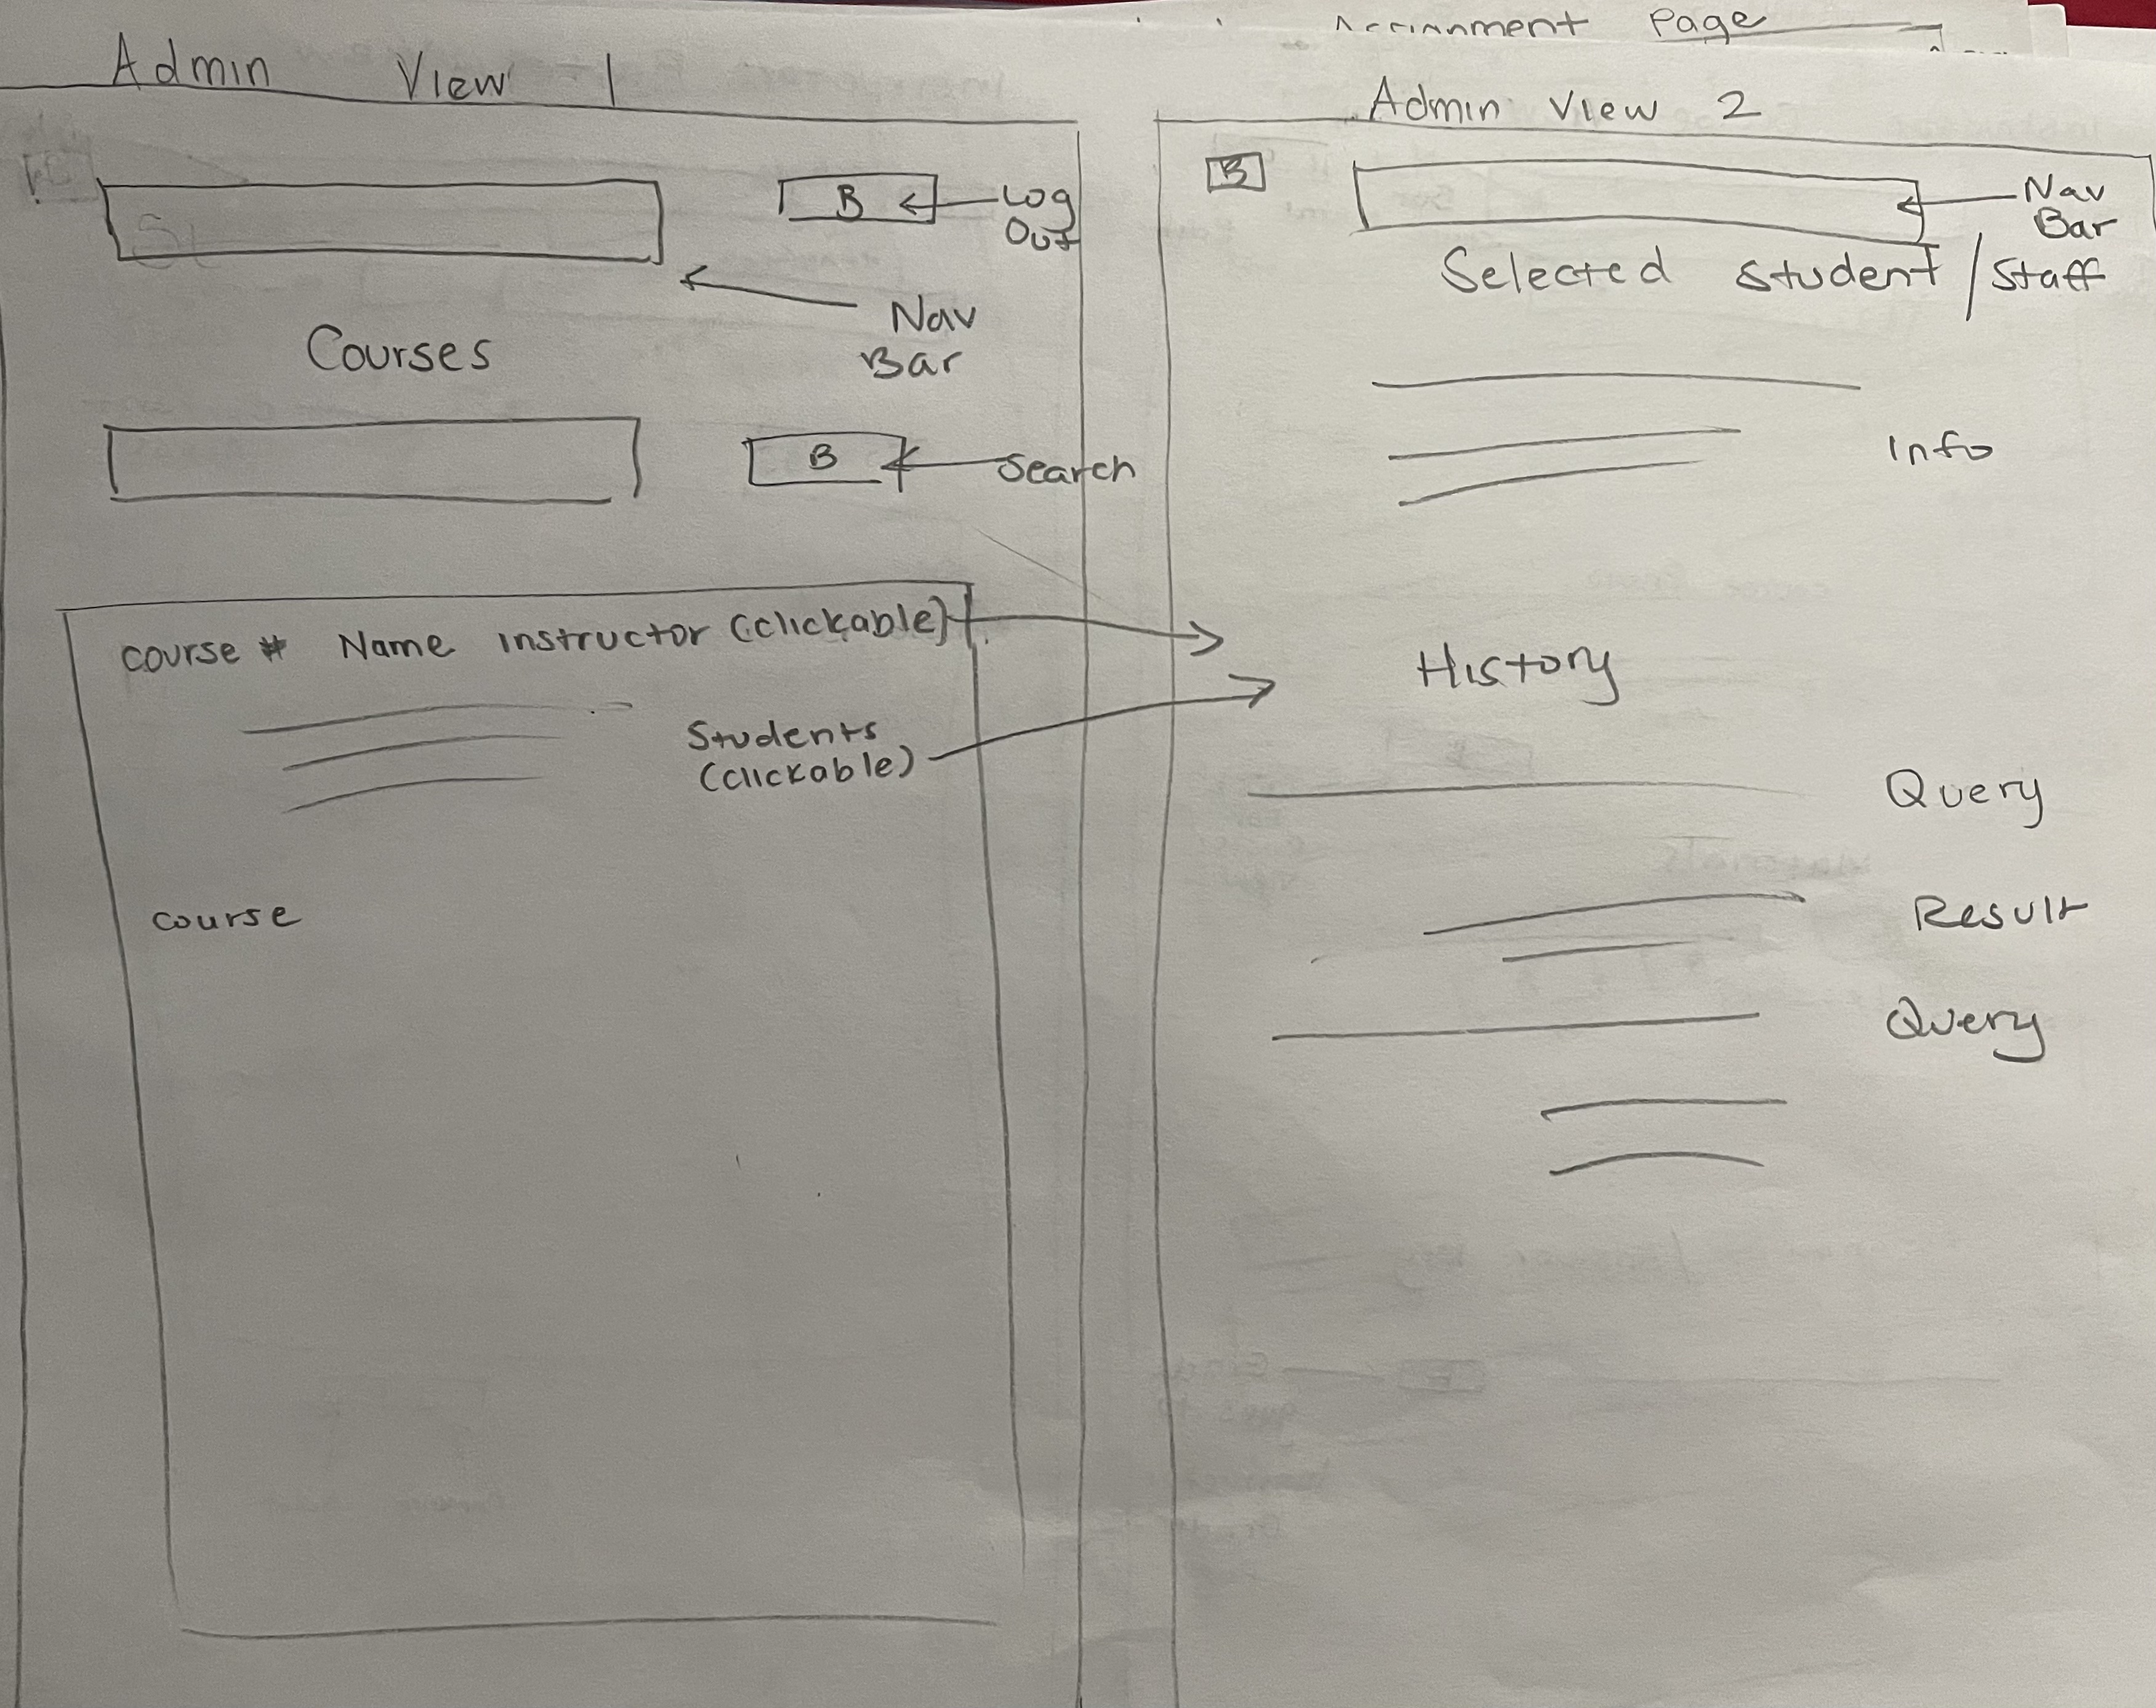 Page
Admin View 1
B
Log
Out
Nav
Bar
Courses
B
Search
course # Name instructor (clickable)
Students
(clickable)
course
Admin View 2
B
Nav
Bar
Selected student / Staff
Info
History
Query
Result
Query